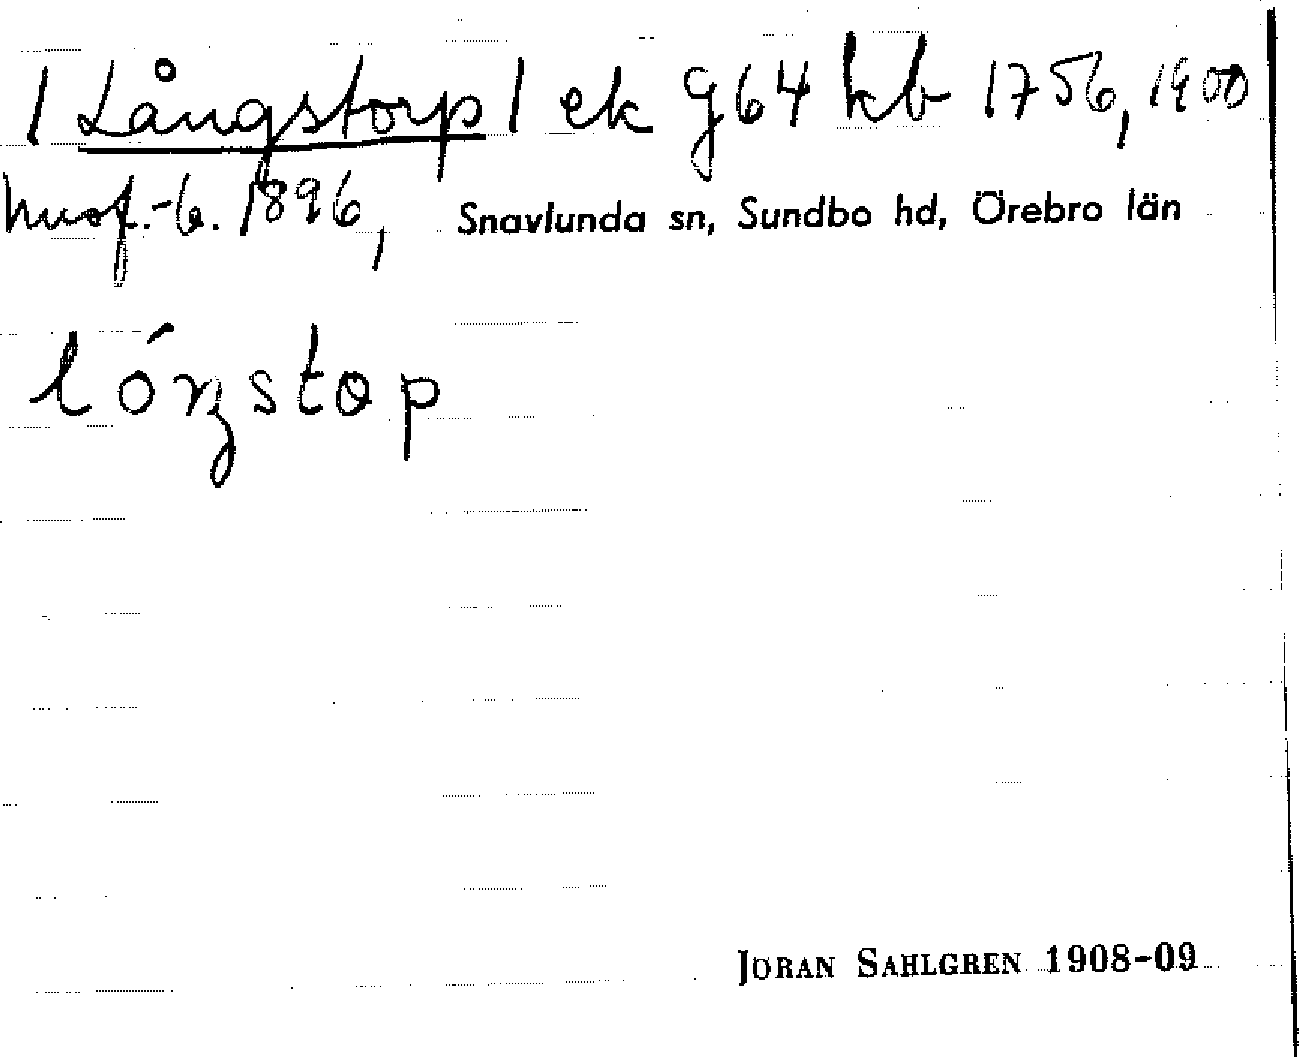 / Långstorp / ek g64 kb 1756, 1900
husf.-b. 1896, Snavlunda sn, Sundbo hd, Örebro län
lóŋstop
JÖRAN SAHLGREN 1908-09